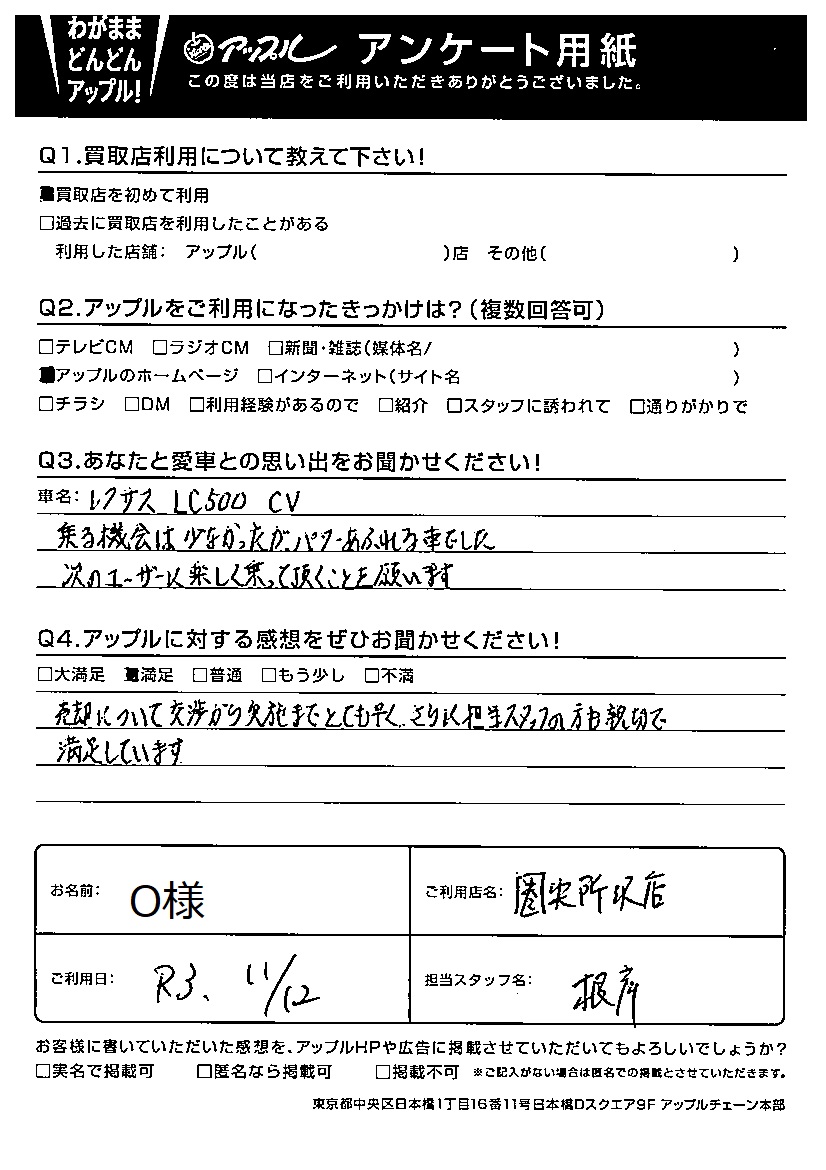 わがまま
どんどん
アップル!
アップル アンケート用紙
この度は当店をご利用いただきありがとうございました。
Q1.買取店利用について教えて下さい!
■買取店を初めて利用
□過去に買取店を利用したことがある
利用した店舗: アップル( )店 その他( )
Q2.アップルをご利用になったきっかけは?(複数回答可)
□テレビCM □ラジオCM □新聞・雑誌(媒体名/ )
■アップルのホームページ □インターネット(サイト名 )
□チラシ □DM □利用経験があるので □紹介 □スタッフに誘われて □通りがかりで
Q3.あなたと愛車との思い出をお聞かせください!
車名: レクサス LC500 CV
乗る機会は少なかったが、パワーあふれる車でした
次のユーザーに楽しく乗って頂くことを願います
Q4.アップルに対する感想をぜひお聞かせください!
□大満足 ■満足 □普通 □もう少し □不満
売却について交渉から実施までとても早く、さらに担当スタッフの方も親切で
満足しています
お名前: O様
ご利用店名: 圏央所沢店
ご利用日: R3. 11/12
担当スタッフ名: 根岸
お客様に書いていただいた感想を、アップルHPや広告に掲載させていただいてもよろしいでしょうか?
□実名で掲載可 □匿名なら掲載可 □掲載不可 ※ご記入がない場合は匿名での掲載とさせていただきます。
東京都中央区日本橋1丁目16番11号日本橋Dスクエア9F アップルチェーン本部